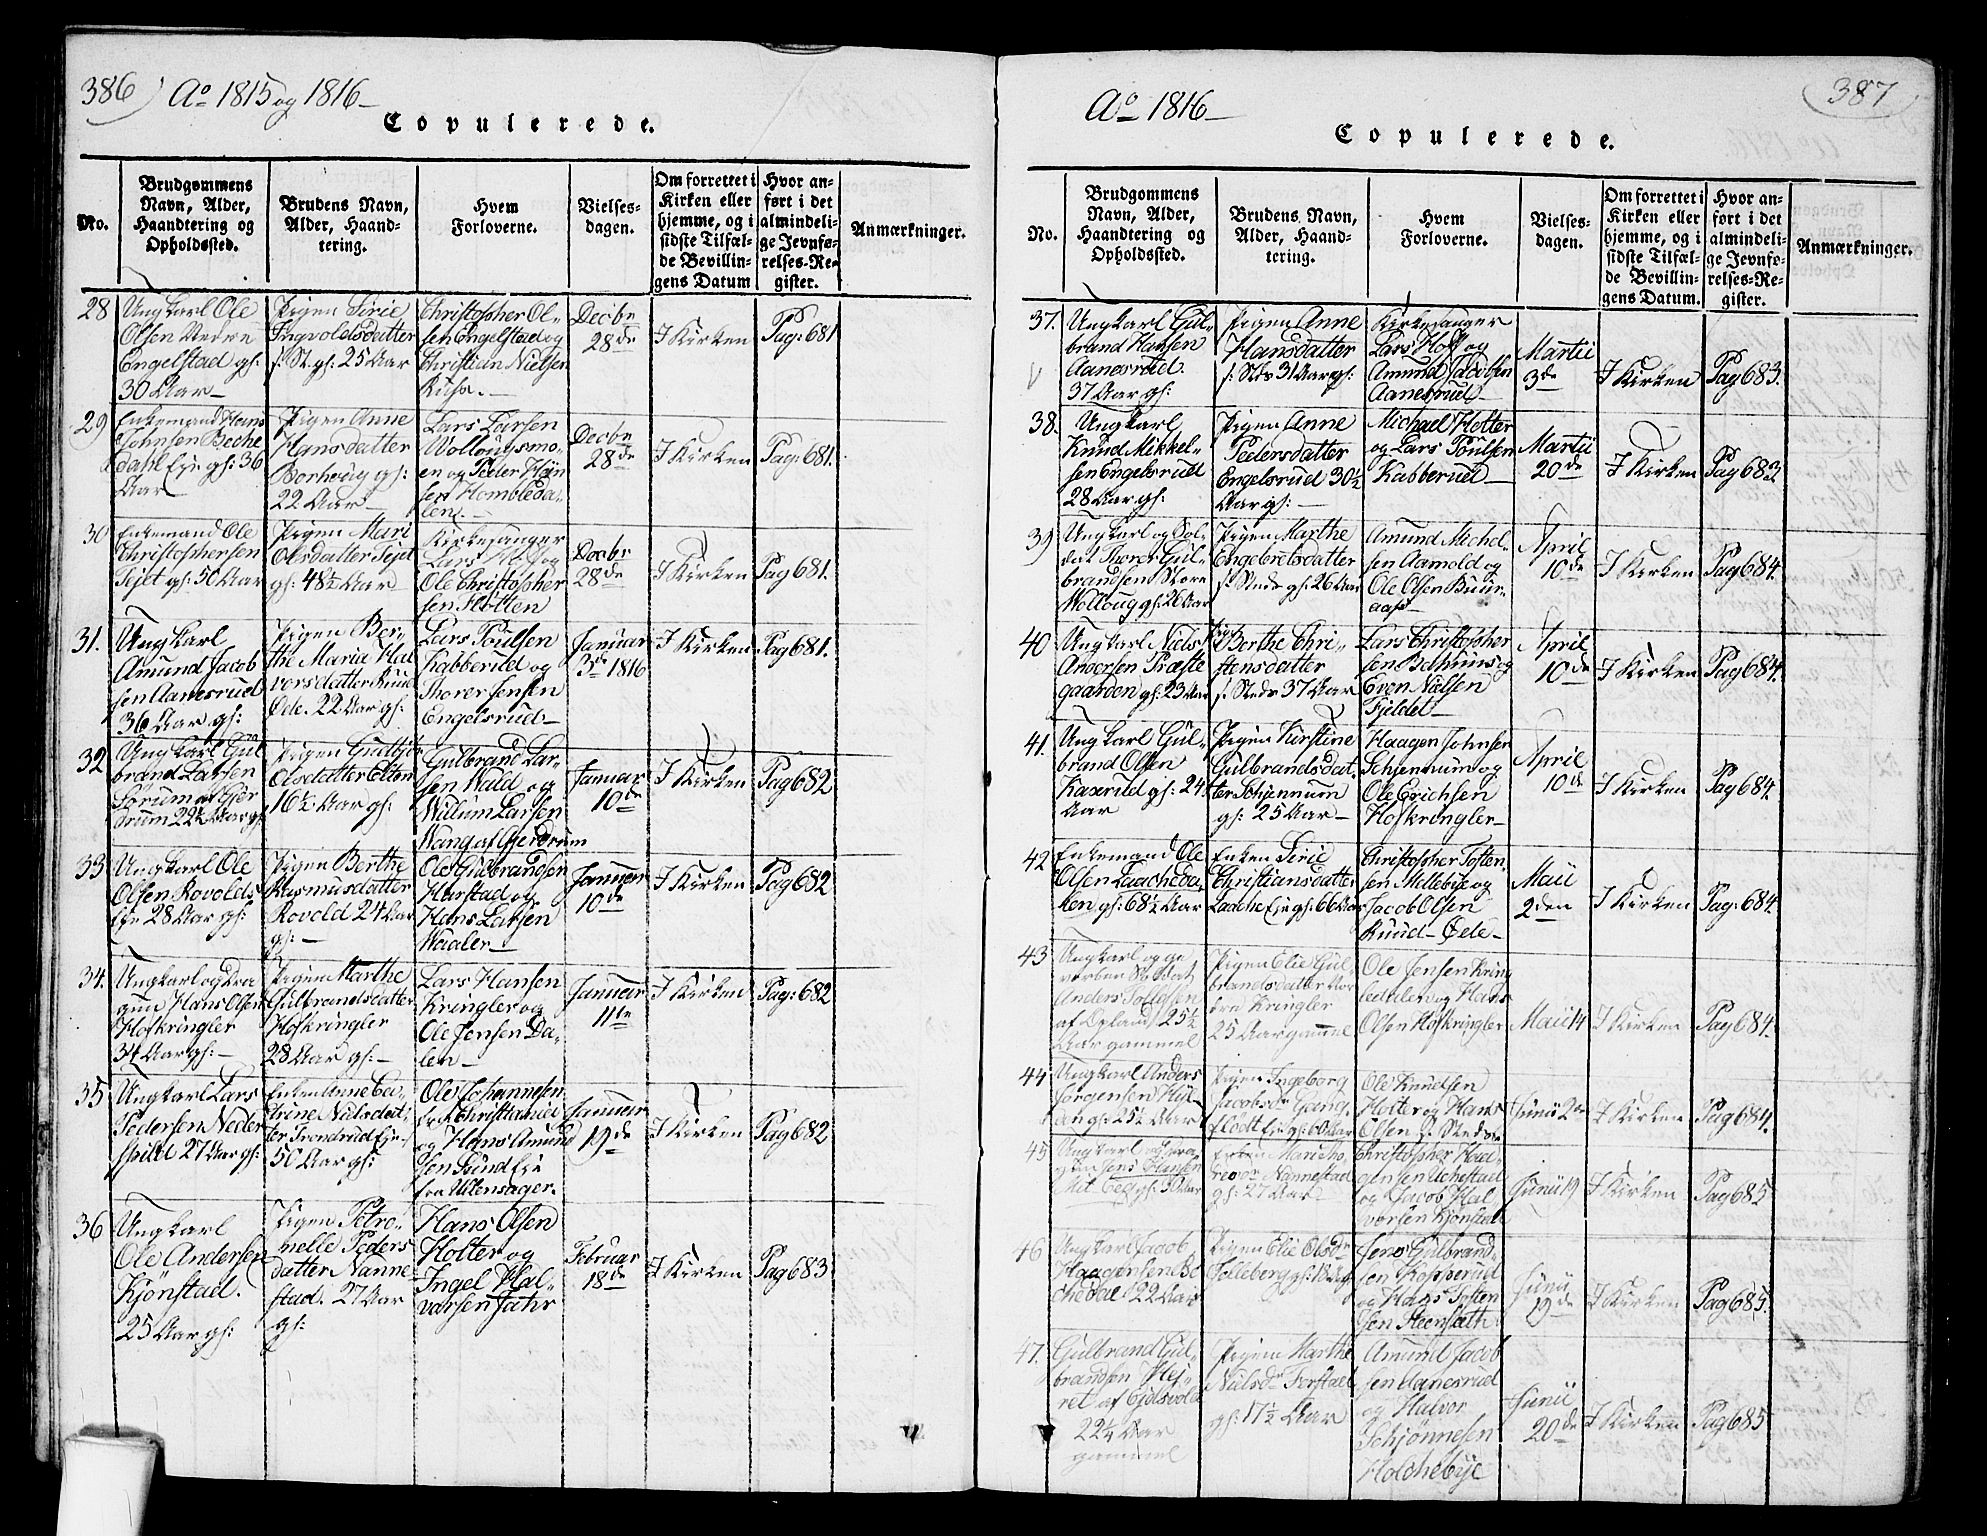 386) Ao 1815 og 1816
Copulerede.
No.
Brudgommens
Navn, Alder,
Haandtering og
Opholdssted.
Brudens Navn,
Alder, Haand-
tering.
Hvem
Forloverne.
Vielses-
dagen.
Om forrettet i
Kirken eller
hjemme, og i
sidste Tilfæl-
de Bevillin-
gens Datum
Hvor an-
ført i det
almindeli-
ge Jevnfø-
relses-Re-
gister.
Anmærkninger.
28
Ungkarl Ole
Olsen Nedre
Engelstad gl:
30 Aar
Pigen Sirie
Ingvoldsdatter
s. St. gl: 25 Aar
Christopher Ol-
sen Engelstad og
Christian Nielsen
Decbr
28de
I Kirken
Pag: 681
29
Enkemand Hans
Johnsen Beche
dahl Eje gl: 36
Aar
Pigen Anne
Hansdatter
gl:
22 Aar
Lars Larsen
Wollougsmo-
en og Peder Han
sen Hombleda-
len.
Decbr
28de
I Kirken
Pag: 681.
30
Enkemand Ole
Christophersen
Sejet gl: 50 Aar
Pigen Mari
Olsdatter Sejet
gl: 48½ Aar
Kirkesanger
Lars Hoff og
Ole Christopher
sen Holten
Decbr
28de
I Kirken
Pag 681.
31.
Ungkarl
Amund Jacob
sen Aanesrud
36 Aar gl:
Pigen Ber-
the Maria Hal
vorsdatter Ruud
Øde. 22 Aar gl:
Lars Poulsen
Kabberud og
Thorer Jensen
Engelsrud
Januar
3de 1816
I Kirken
Pag 681.
32
Ungkarl Gul
brand Larsen
Sørum af Gjer
drum 22½ Aar gl:
Pigen
Olsdatter Elten
16½ Aar gl:
Gulbrand Lar-
sen Wald og
Willum Larsen
Wang af Gjerdrum
Januar
10de
I Kirken
Pag 682
33
Ungkarl Ole
Olsen Rovolds
Eje 28 Aar gl:
Pigen Berthe
Rasmusdatter
Rovold 24 Aar
gl:
Ole Gulbrandsen
Harstad og
Hans Larsen
Waaler
Januar
10de
I Kirken
Pag 682
34.
Ungkarl og Dra
gun Hans Olsen
Hofkringler
34 Aar gl:
Pigen Marthe
Gulbrandsdatter
Hofkringler
28 Aar gl:
Lars Hansen
Kringler og
Ole Jensen Da-
len
Januar
11de
I Kirken
Pag: 682
35
Ungkarl Lars
Pedersen Neder
spild 27 Aar gl:
Enken Anne Ca-
trine Nielsdat-
ter Trondrud Eje
50 Aar gl:
Ole Johannesen
fra Christiania
og Hans Amund
sen Sund Eje
fra Ullensager.
Januar
19de
I Kirken
Pag 682
36
Ungkarl
Ole Andersen
Kjønstad.
25 Aar gl:
Pigen Petro-
nelle Peders
datter Nanne
stad. 27 Aar
gl:
Hans Olsen
Holter og
Ingel Hal-
vorsen Jahr
Februar
18de
I Kirken
Pag 683
Ao 1816
387
Copulerede.
No.
Brudgommens
Navn, Alder,
Haandtering og
Opholdssted.
Brudens Navn,
Alder, Haand-
tering.
Hvem
Forloverne.
Vielses-
dagen.
Om forrettet i
Kirken eller
hjemme, og i
sidste Tilfæl-
de Bevillin-
gens Datum.
Hvor an-
ført i det
almindeli-
ge Jevnfø-
relses-Re-
gister.
Anmærkninger.
37.
Ungkarl Gul-
brand Hansen
Aanesrud.
37 Aar gl:
Pigen Anne
Hansdatter
s: Sted 31 Aar gl:
Kirkesanger
Lars Hoff og
Amund Jacobsen
Aanesrud
Martii
3de
I Kirken
Pag 683.
38.
Ungkarl
Knud Mikkel-
sen Engelsrud
28 Aar gl:
Pigen Anne
Pedersdatter
Engelsrud 30½
Aar gl:
Michael Holter
og Lars Poulsen
Kabberud
Martii
20de
I Kirken
Pag 683
39
Ungkarl og Sol-
dat Thorer Gul-
brandsen Store
Wolloug gl: 26 Aar
Pigen Marthe
Engebretsdatter
s: Steds gl: 26 Aar
Amund Michel-
sen Aamold og
Ole Olsen Buur-
aase
April
10de
I Kirken
Pag 684.
40
Ungkarl Niels
Andersen Præste
gaarden gl: 23 Aar
Pigen Berthe Chri-
stensdatter
s. Steds 37 Aar
Lars Christopher
sen Bahuus og
Even Nielsen
Fjeldet
April
10de
I Kirken
Pag 684.
41.
Ungkarl Gul-
brand Olsen
Kaxrud gl: 24
Aar
Pigen Kirstine
Gulbrandsdat-
ter Schjennum
gl: 25 Aar
Haagen Johnsen
Schjennum og
Ole Erichsen
Hofkringler
April
10de
I Kirken
Pag 684.
42
Enkemand Ole
Olsen Laacheda-
len gl: 68½ Aar
Enken Sirie
Christiansdatter
Laache Eje gl: 66 Aar
Christopher Tosten-
sen Millebye og
Jacob Olsen
Ruud-Øde
Maii
2den
I Kirken
Pag: 684.
43
Ungkarl og ge
vorben Soldat
Anders
af Opland, 25½
Aar gammel
Pigen Elie Gul-
brandsdatter Nor
dre Kringler
25 Aar gammel
Ole Jensen Kring
leddalen og Hans
Olsen Hofkringler
Maii 14
I Kirken
Pag 684.
44
Ungkarl Anders
Jørgensen
gl: 25½ Aar
Pigen Ingeborg
Jacobsdr Gang-
flodt Eje gl: 60 Aar
Ole Knudsen
Holter og Hans
Olsen s. Steds
Junii 2den
I Kirken
Pag 684.
45
Ungkarl og Dra-
gun Jens Hansen
gl: 30 Aar
Enken Mari
Nannestad
gl: 27 Aar
Christopher Haa-
gensen Uchestad
og Jacob Hal
vorsen Kjønstad
Junii 19
I Kirken
Pag 685
46
Ungkarl Jacob
Haagensen Be
chedal 22 Aar
Pigen Elie Olsdr
Jelleberg gl: 18 Aar
Jens Gulbrand-
sen Kopperud
og Hans Tosten
sen Steenseth
Junii
19de
I Kirken
Pag 685.
47.
Gulbrand Gul-
brandsen
af Eidsvold
22¼ Aar
gammel
Pigen Marthe
Nielsdr Forstad
gl: 17½ Aar
Amund Jacob
sen Aanesrud
og Halvor
Schjønnesen
Holchebye
Junii
20de
I Kirken
Pag 685